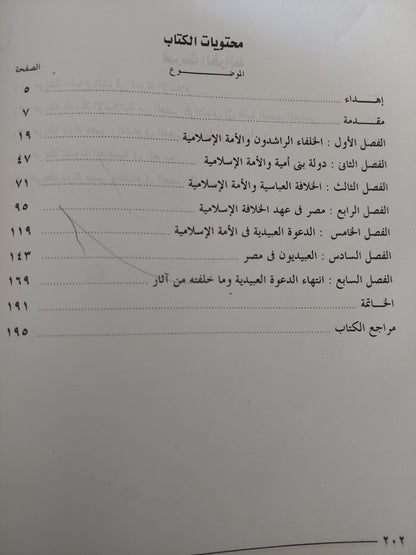 محتويات الكتاب
الموضــــــــوع الصفحة
إهــداء ........ ٥
مقــدمة ........ ٧
الفصل الأول : الخلفاء الراشدون والأمة الإسلامية ........ ١٩
الفصل الثانى : دولة بنى أمية والأمة الإسلامية ........ ٤٧
الفصل الثالث : الخلافة العباسية والأمة الإسلامية ........ ٧١
الفصل الرابع : مصر فى عهد الخلافة الإسلامية ........ ٩٥
الفصل الخامس : الدعوة العبيدية فى الأمة الإسلامية ........ ١١٩
الفصل السادس : العبيديون فى مصر ........ ١٤٣
الفصل السابع : انتهاء الدعوة العبيدية وما خلفته من آثار ........ ١٦٩
الخــاتمة ........ ١٩١
مراجع الكتاب ........ ١٩٥
٢٠٢